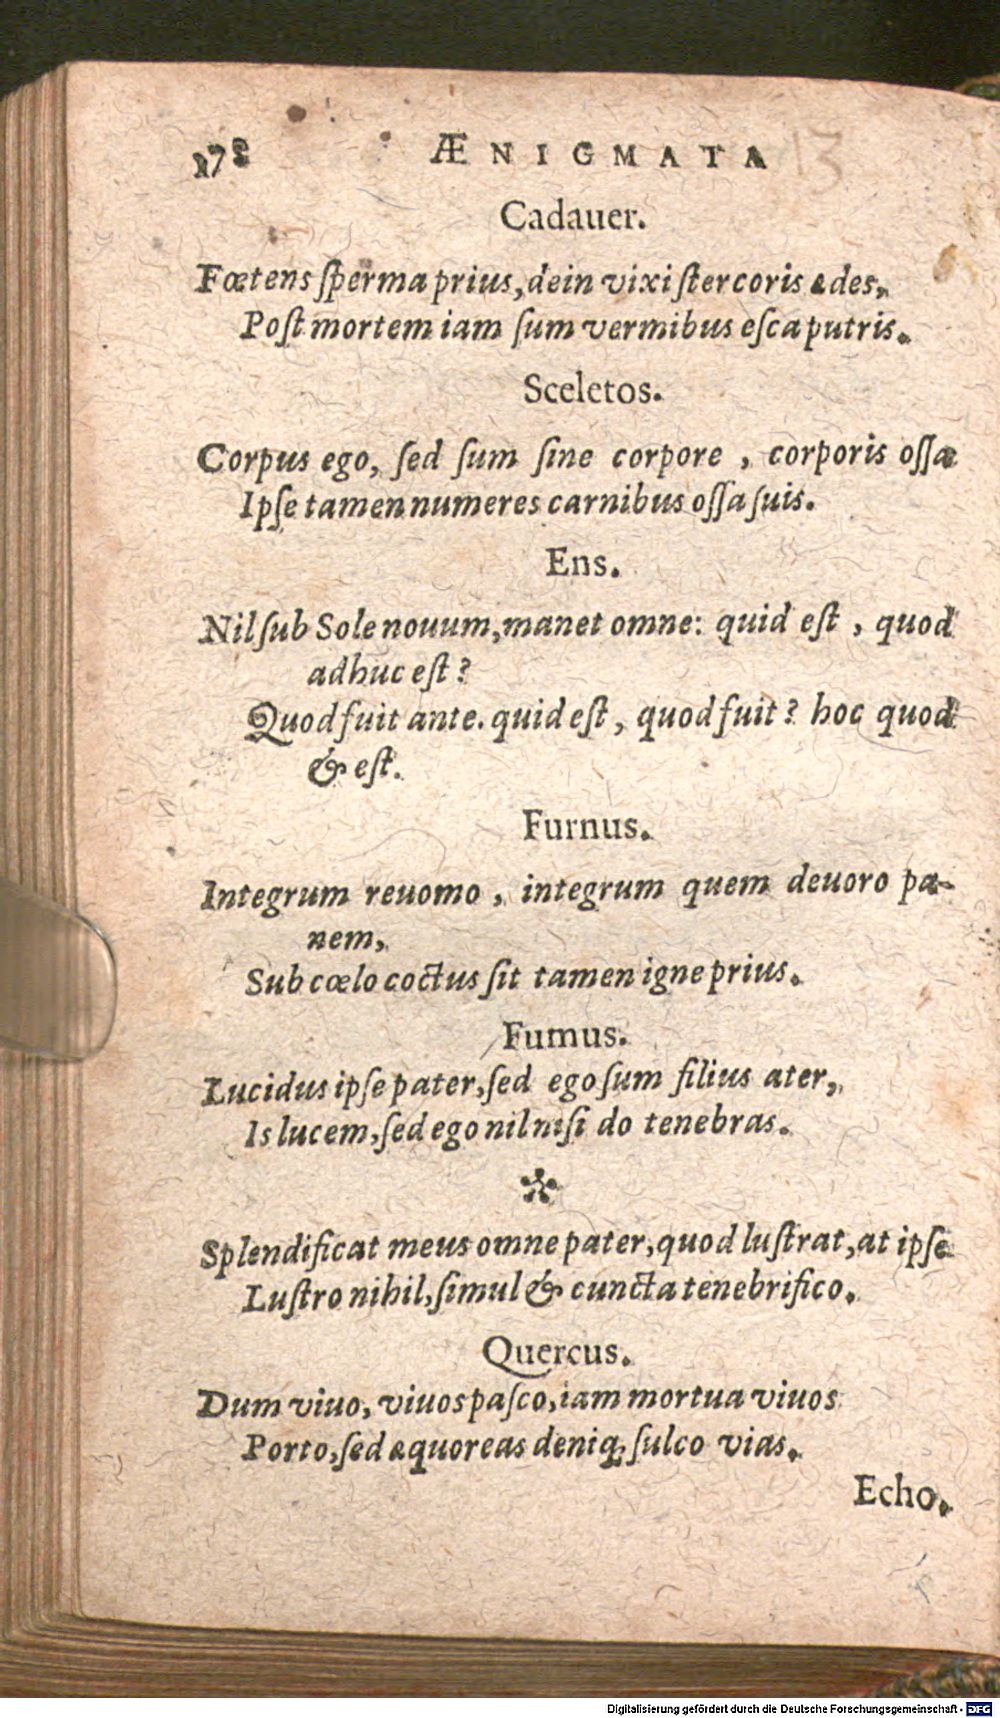 172 ÆNIGMATA
Cadauer.
Fœtens ſperma prius, dein vixi ſtercoris ædes,
Poſt mortem iam ſum vermibus eſca putris.
Sceletos.
Corpus ego, ſed ſum ſine corpore, corporis oſſa
Ipſe tamen numeres carnibus oſſa ſuis.
Ens.
Nil ſub Sole nouum, manet omne: quid eſt, quod
adhuc eſt?
Quod fuit ante. quid eſt, quod fuit? hoc quod
& eſt.
Furnus.
Integrum reuomo, integrum quem deuoro pa-
nem,
Sub cœlo coctus ſit tamen igne prius.
Fumus.
Lucidus ipſe pater, ſed ego ſum filius ater,
Is lucem, ſed ego nil niſi do tenebras.
*
Splendificat meus omne pater, quod luſtrat, at ipſe
Luſtro nihil, ſimul & cuncta tenebrifico.
Quercus.
Dum viuo, viuos paſco, iam mortua viuos
Porto, ſed æquoreas deniq; ſulco vias.
Echo.
Digitalisierung gefördert durch die Deutsche Forschungsgemeinschaft - DFG